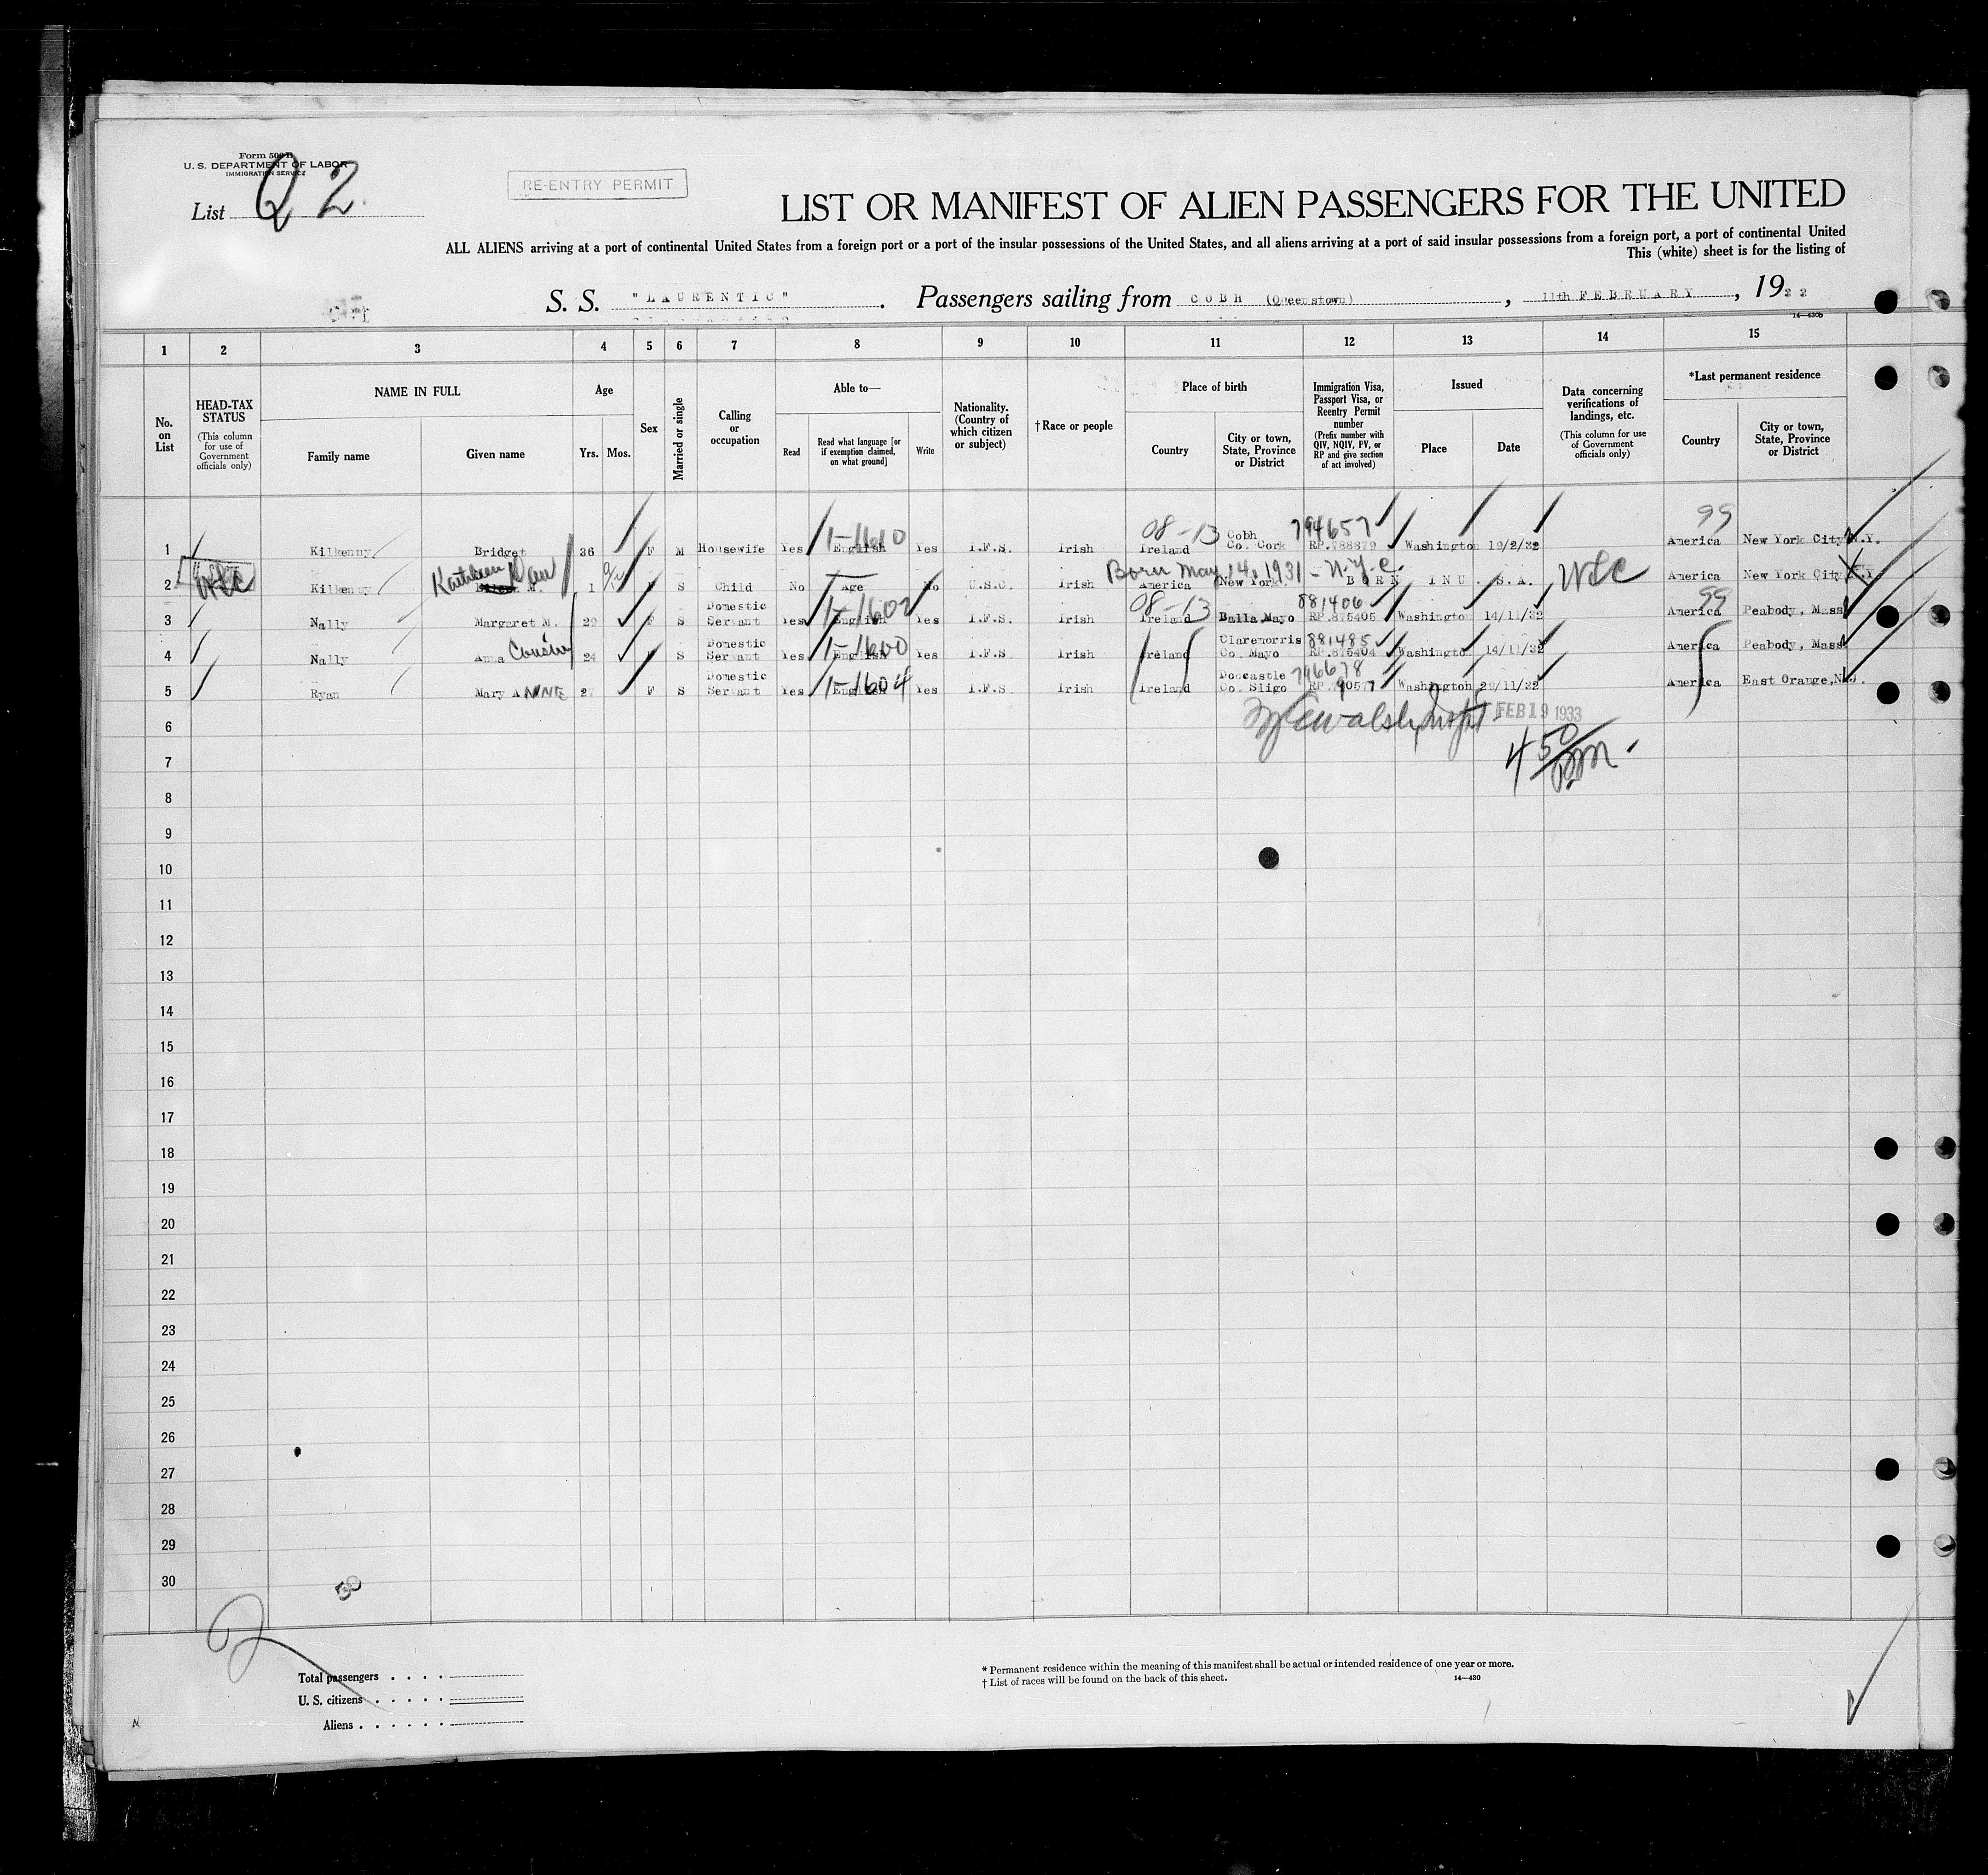 Form 500 B
U. S. DEPARTMENT OF LABOR
IMMIGRATION SERVICE
List Q 2
RE-ENTRY PERMIT
LIST OR MANIFEST OF ALIEN PASSENGERS FOR THE UNITED
ALL ALIENS arriving at a port of continental United States from a foreign port or a port of the insular possessions of the United States, and all aliens arriving at a port of said insular possessions from a foreign port, a port of continental United
This (white) sheet is for the listing of
S. S. "LAURENTIC". Passengers sailing from COBH (Queenstown), 11th FEBRUARY, 19
14—430b
1 2 3 4 5 6 7 8 9 10 11 12 13 14 15
No. on List
HEAD-TAX STATUS
(This column for use of Government officials only)
NAME IN FULL
Family name Given name
Age
Yrs. Mos.
Sex
Married or single
Calling or occupation
Able to—
Read
Read what language [or if exemption claimed, on what ground]
Write
Nationality. (Country of which citizen or subject)
† Race or people
Place of birth
Country
City or town, State, Province or District
Immigration Visa, Passport Visa, or Reentry Permit number
(Prefix number with QIV, NQIV, PV, or RP and give section of act involved)
Issued
Place Date
Data concerning verifications of landings, etc.
(This column for use of Government officials only)
*Last permanent residence
Country
City or town, State, Province or District
08-13 Cobh 794657 99
1 Kilkenny Bridget 36 F M Housewife Yes English 1-1610 Yes I.F.S. Irish Ireland Co. Cork RP.788879 Washington 19/2/32 America New York City N.Y.
Kathleen Born May 14, 1931 - N.Y.C.
2 WLC Kilkenny M. 1 S Child No Age No U.S.C. Irish America New York. BORN IN U.S.A. WLC America New York City N.Y.
Domestic 1-1602 08-13 881406 99
3 Nally Margaret M. 29 F S Servant Yes English Yes I.F.S. Irish Ireland Balla, Mayo RP.875405 Washington 14/11/32 America Peabody, Mass
Cousin Domestic 1-1600 Claremorris 881485
4 Nally Anna 24 S Servant Yes English Yes I.F.S Irish Ireland Co. Mayo RP.875404 Washington 14/11/32 America Peabody, Mass
Domestic 1-1604 796678
5 Ryan Mary ANNE 27 F S Servant Yes English Yes I.F.S. Irish Ireland Co. Sligo Washington 29/11/32 America East Orange, N.J.
FEB 19 1933
6
4 50 PM.
7
8
9
10
11
12
13
14
15
16
17
18
19
20
21
22
23
24
25
26
27
28
29
30
Total passengers
U. S. citizens
Aliens
* Permanent residence within the meaning of this manifest shall be actual or intended residence of one year or more.
† List of races will be found on the back of this sheet. 14—430